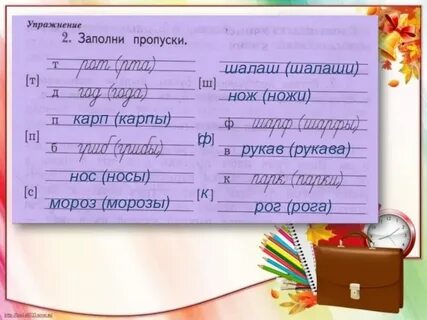 Упражнение
2. Заполни пропуски.
т рот (рта)
[т]
д год (года)
п карп (карпы)
[п]
б гриб (грибы)
нос (носы)
[с]
мороз (морозы)
шалаш (шалаши)
[ш]
нож (ножи)
ф шарф (шарфы)
[ф]
в рукав (рукава)
к парк (парки)
[к]
рог (рога)